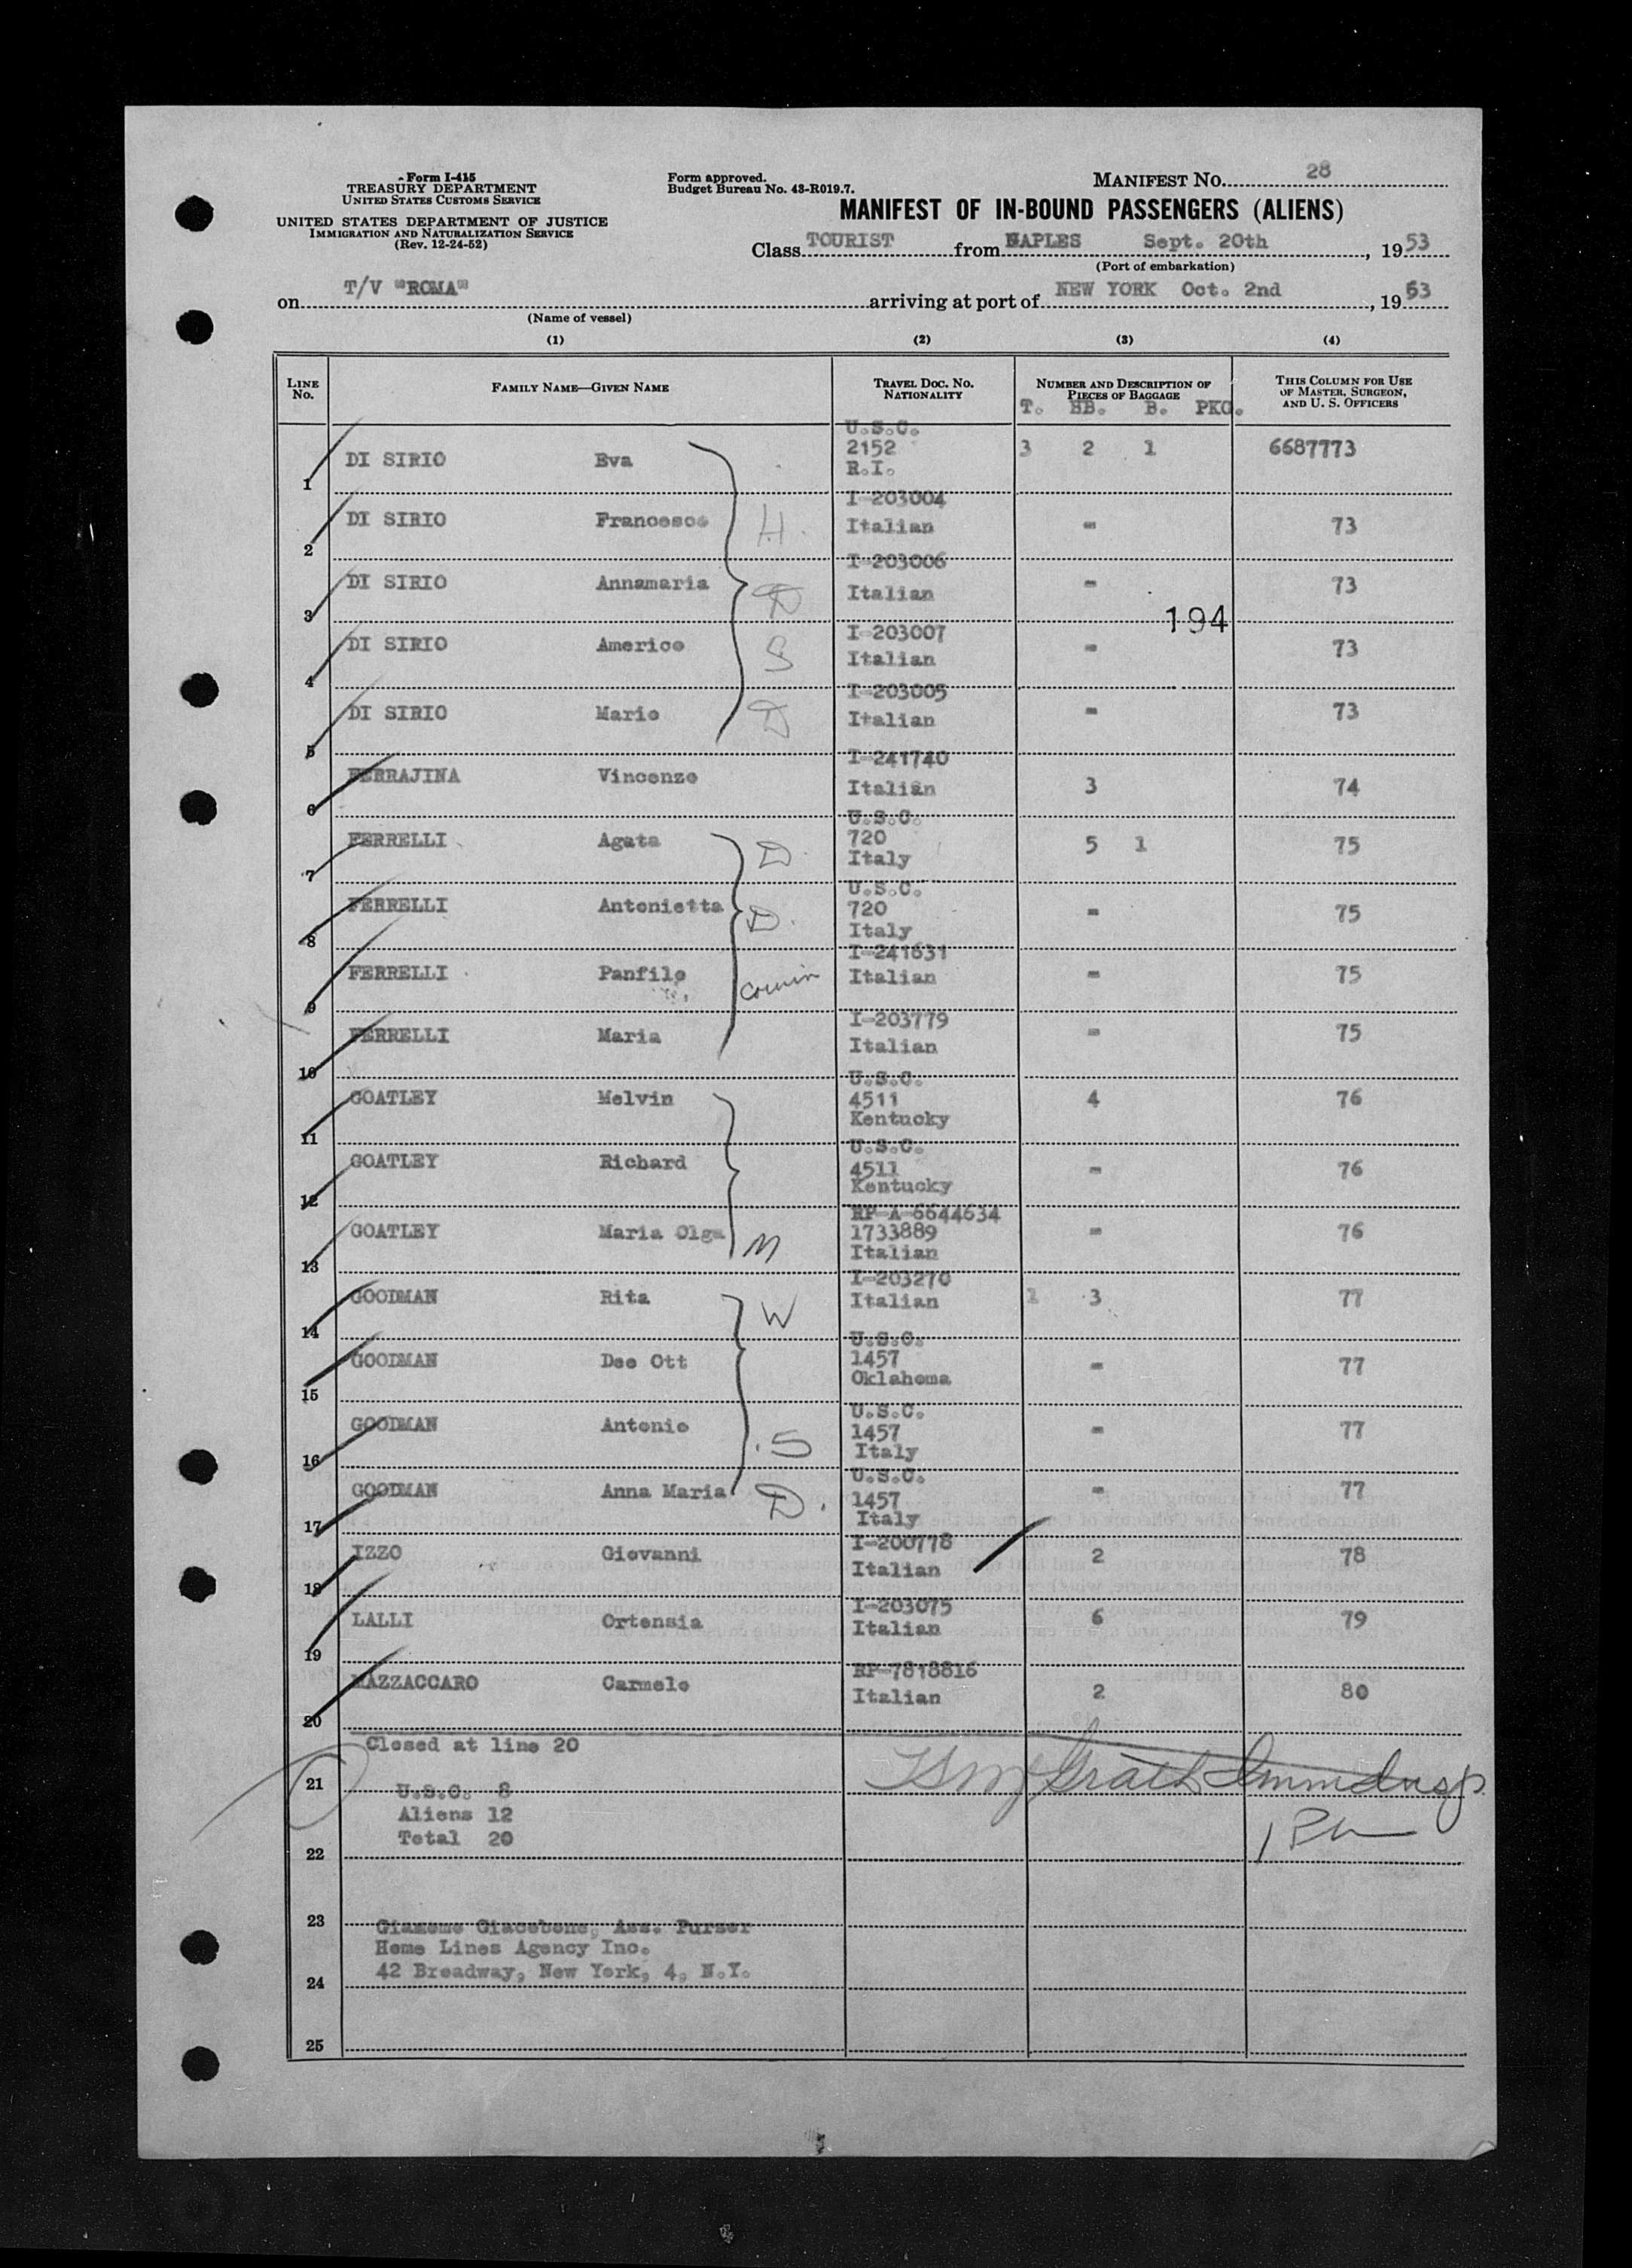 Form I-415
TREASURY DEPARTMENT
UNITED STATES CUSTOMS SERVICE
UNITED STATES DEPARTMENT OF JUSTICE
IMMIGRATION AND NATURALIZATION SERVICE
(Rev. 12-24-52)
Form approved.
Budget Bureau No. 43-R019.7.
MANIFEST NO. 28
MANIFEST OF IN-BOUND PASSENGERS (ALIENS)
Class TOURIST from NAPLES Sept. 20th, 1953
(Port of embarkation)
on T/V "ROMA" arriving at port of NEW YORK Oct. 2nd, 1953
(Name of vessel)
(1) (2) (3) (4)
LINE No. FAMILY NAME—GIVEN NAME TRAVEL DOC. NO. NATIONALITY NUMBER AND DESCRIPTION OF PIECES OF BAGGAGE THIS COLUMN FOR USE OF MASTER, SURGEON, AND U. S. OFFICERS
T. HB. B. PKG.
1 DI SIRIO Eva U.S.C. 2152 R.I. 3 2 1 6687773
2 DI SIRIO Francesco H. I-203004 Italian - 73
3 DI SIRIO Annamaria D I-203006 Italian - 73
194
4 DI SIRIO Americo S I-203007 Italian - 73
5 DI SIRIO Mario D I-203005 Italian - 73
6 FERRAJINA Vincenzo I-241740 Italian 3 74
7 FERRELLI Agata D. U.S.C. 720 Italy 5 1 75
8 FERRELLI Antonietta D. U.S.C. 720 Italy - 75
9 FERRELLI Panfilo cousin I-241631 Italian - 75
10 FERRELLI Maria I-203779 Italian - 75
11 GOATLEY Melvin U.S.C. 4511 Kentucky 4 76
12 GOATLEY Richard U.S.C. 4511 Kentucky - 76
13 GOATLEY Maria Olga M RP-A-6644634 1733889 Italian - 76
14 GOODMAN Rita W I-203270 Italian 1 3 77
15 GOODMAN Dee Ott U.S.C. 1457 Oklahoma - 77
16 GOODMAN Antonio S U.S.C. 1457 Italy - 77
17 GOODMAN Anna Maria D. U.S.C. 1457 Italy - 77
18 IZZO Giovanni I-200778 Italian 2 78
19 LALLI Ortensia I-203075 Italian 6 79
20 MAZZACCARO Carmelo RP-7818816 Italian 2 80
Closed at line 20
21 U.S.C. 8
Aliens 12
Total 20
22
23 Giacobone, Ass. Purser
Home Lines Agency Inc.
24 42 Broadway, New York, 4, N.Y.
25